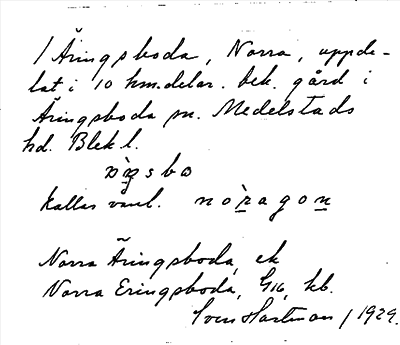 / Äringsboda, Norra, uppde-
lat i 10 hm.delar. bek. gård i
Äringsboda sn. Medelstads
hd. Blek l.
kallas vanl. noragon
Norra Äringsboda, ek
Norra Eringsboda, G16, kb.
Sven Hartman / 1929.